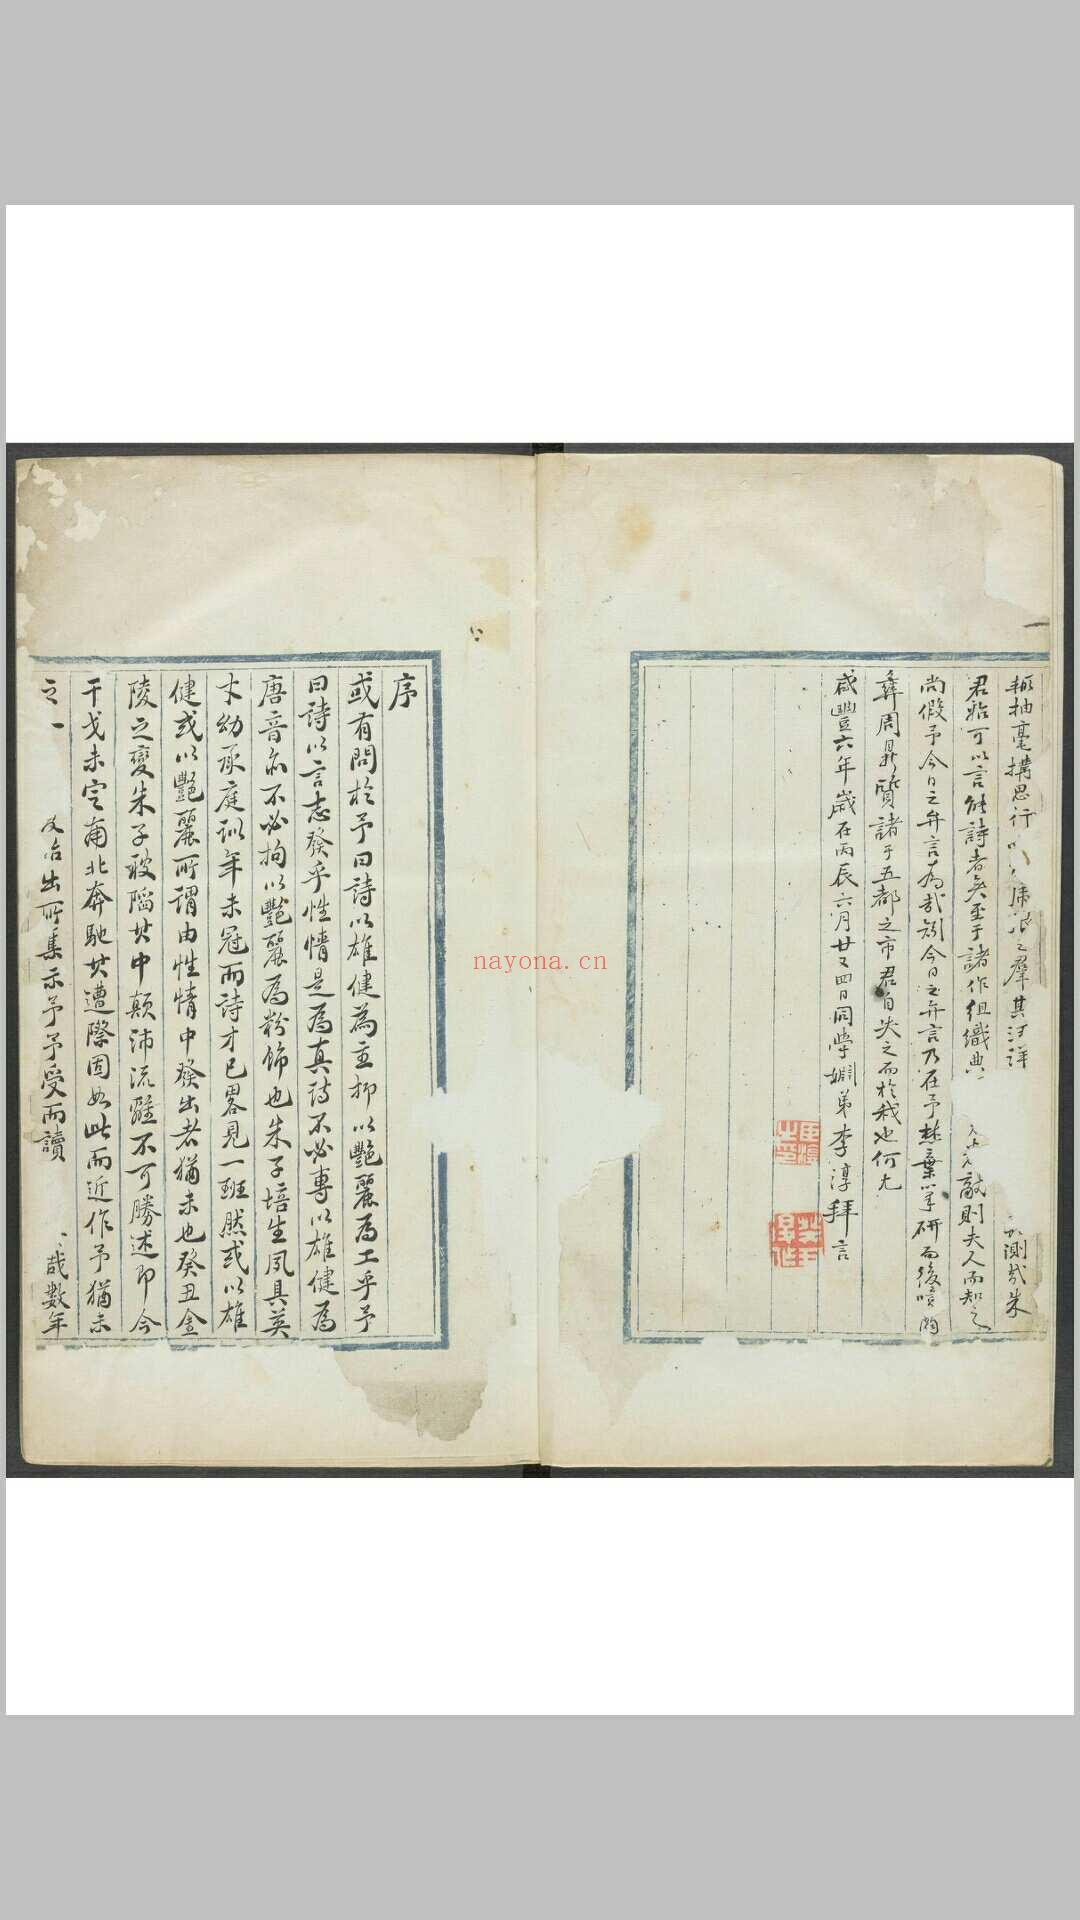 輒抽毫構思行
之羣其汪洋
測哉朱
君殆可以言能詩者矣至于諸作組織典
敵則夫人而知之
尚假予今日之弁言為哉矧今日之弁言乃在予焚棄筆研而後嘖
彝周鼎質諸于五都之市君自失之而於我也何尤
咸豐六年歲在丙辰六月廿又四日同學姻弟李淳拜言
序
或有問於予曰詩以雄健為主抑以艷麗為工乎予
曰詩以言志發乎性情是為真詩不必專以雄健為
唐音亦不必拘以艷麗為粉飾也朱子培生夙具英
才幼承庭訓年未冠而詩才已畧見一班然或以雄
健或以艷麗所謂由性情中發出者猶未也癸丑金
陵之變朱子被陷其中顛沛流離不可勝述即今
干戈未定南北奔馳其遭際固如此而近作予猶未
之一
出所集示予予受而讀
哉數年
nayona.cn